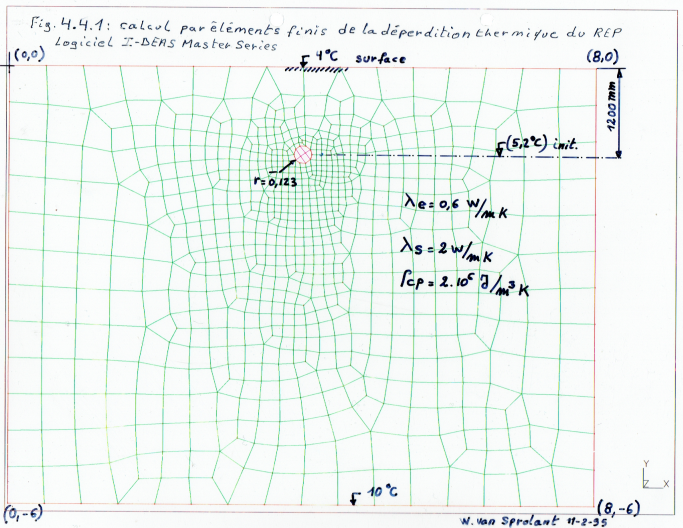 Fig. 4.4.1: calcul par éléments finis de la déperdition thermique du REP
Logiciel I-DEAS Master Series
(0,0)
4°C surface
(8,0)
1200 mm
(5,2°C) init.
r=0,123
λe = 0,6 W/mK
λs = 2 W/mK
ρcp = 2.10⁶ J/m³K
Y
Z X
10°C
(0,-6)
(8,-6)
W. Van Sprolant 11-2-95